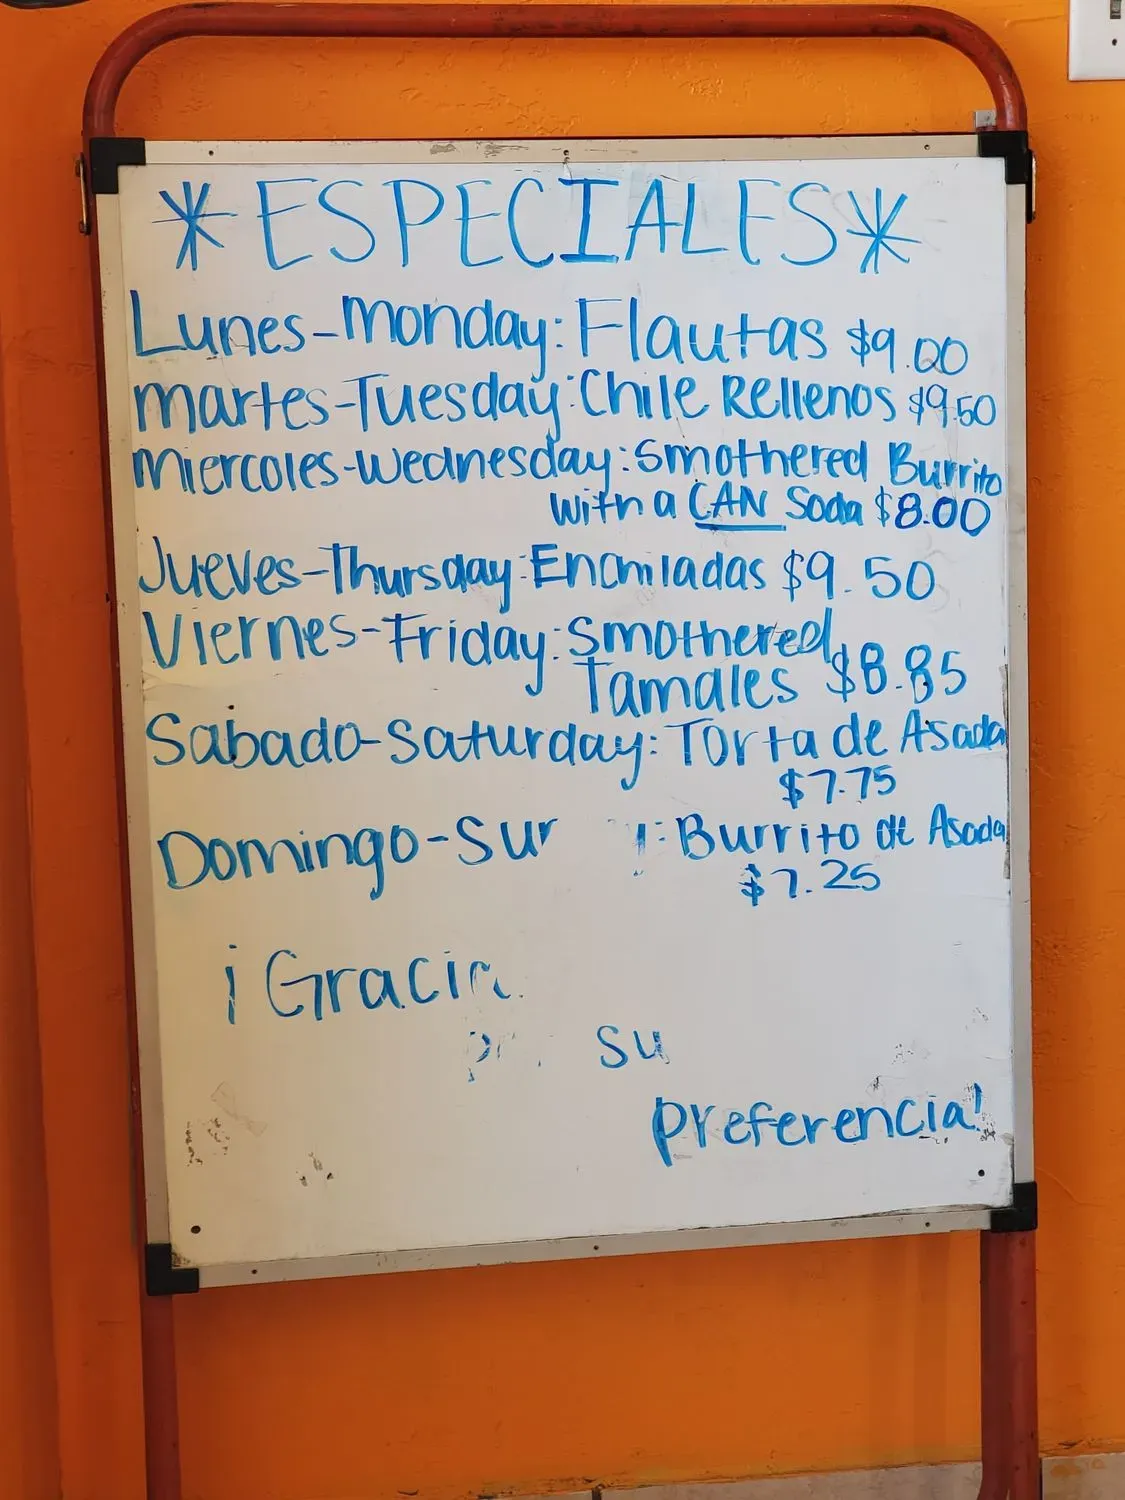 *ESPECIALES*
Lunes-Monday: Flautas $9.00
Martes-Tuesday: Chile Rellenos $9.50
Miercoles-Wednesday: Smothered Burrito
with a CAN Soda $8.00
Jueves-Thursday: Enchiladas $9.50
Viernes-Friday: Smothered
Tamales $8.85
Sabado-Saturday: Torta de Asada
$7.75
Domingo- : Burrito de Asada
$7.25
¡
su
preferencia!